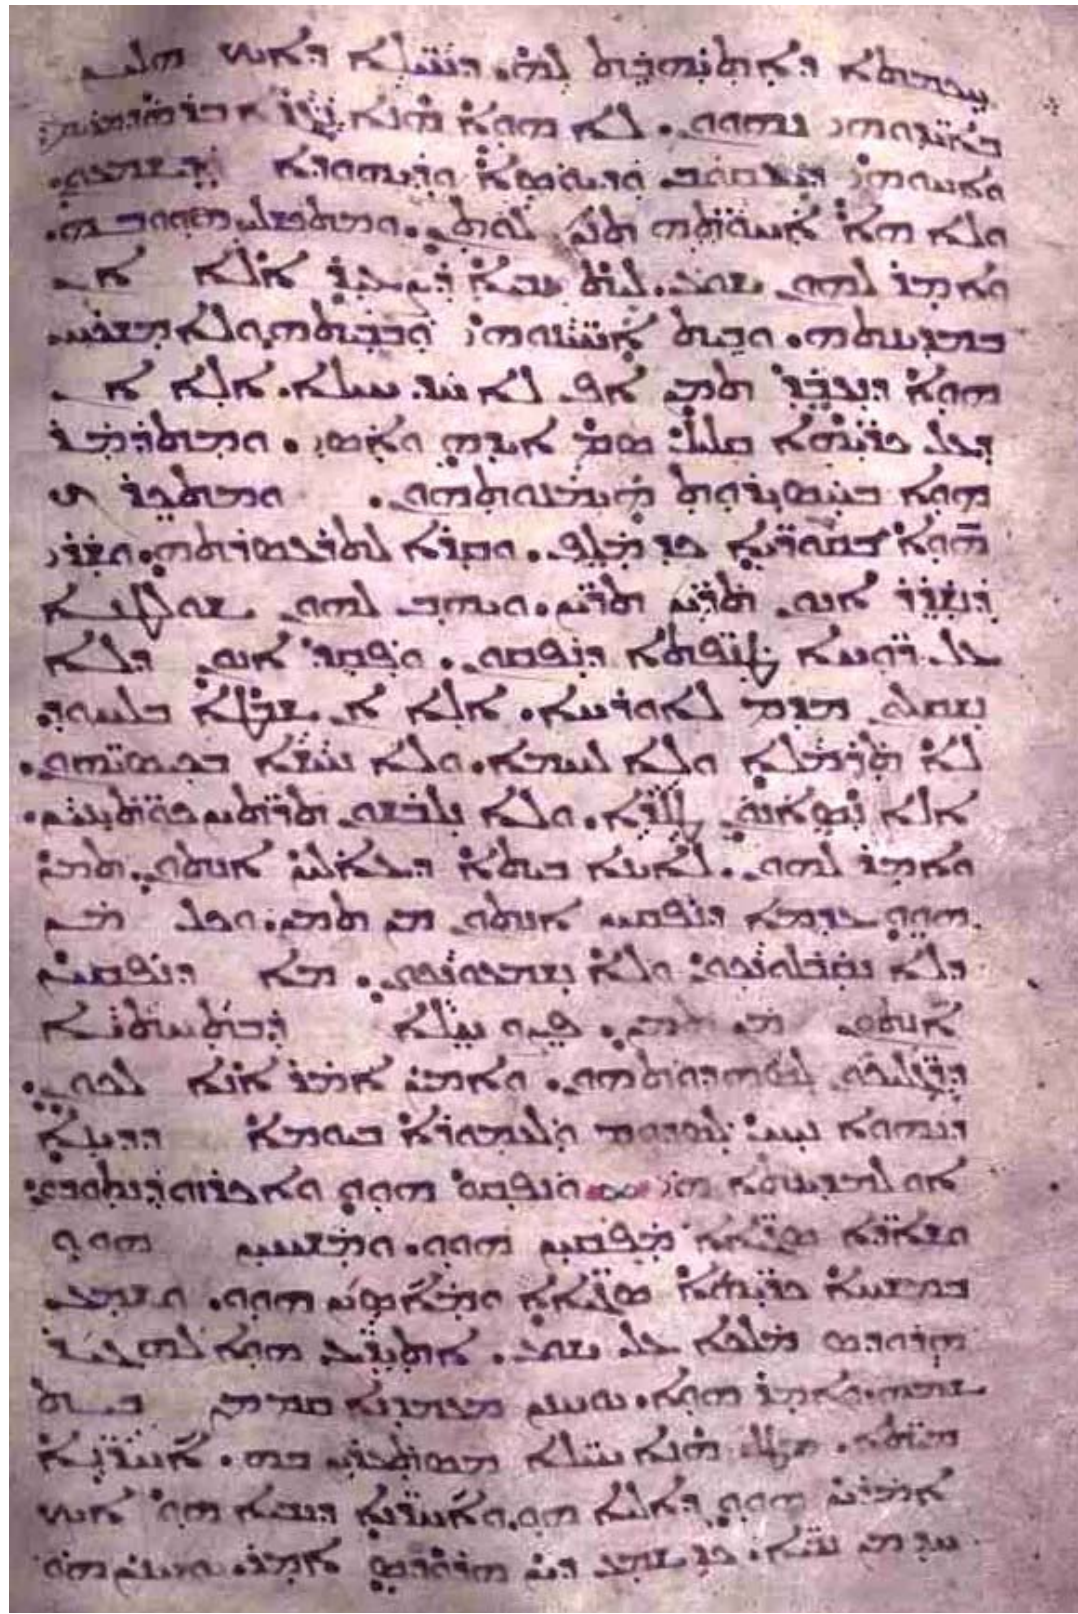 ܚܟܡܬܐ ܕܐܬܝܗܒܬ ܠܗ. ܕܚܝܠܐ ܕܐܝܟ ܗܠܝܢ
ܒܐܝܕܘܗܝ ܢܗܘܘܢ. ܠܐ ܗܘܐ ܗܢܐ ܢܓܪܐ ܒܪܗ ܕܡܪܝܡ
ܘܐܚܘܗܝ ܕܝܥܩܘܒ ܘܕܝܘܣܐ ܘܕܝܗܘܕܐ ܘܕܫܡܥܘܢ.
ܘܠܐ ܗܐ ܐܚܘܬܗ ܬܢܢ ܠܘܬܢ. ܘܡܬܟܫܠܝܢ ܗܘܘ ܒܗ.
ܘܐܡܪ ܠܗܘܢ ܝܫܘܥ. ܠܝܬ ܢܒܝܐ ܕܨܥܝܪ ܐܠܐ ܐܢ
ܒܡܕܝܢܬܗ. ܘܒܝܬ ܐܚܝܢܘܗܝ ܘܒܒܝܬܗ ܘܠܐ ܡܫܟܚ
ܗܘܐ ܕܢܥܒܕ ܬܡܢ ܐܦ ܠܐ ܚܕ ܚܝܠܐ. ܐܠܐ ܐܢ
ܕܥܠ ܟܪܝܗܐ ܩܠܝܠ ܣܡ ܐܝܕܗ ܘܐܣܝ. ܘܡܬܕܡܪ
ܗܘܐ ܒܚܣܝܪܘܬ ܗܝܡܢܘܬܗܘܢ. ܘܡܬܟܪܟ
ܗܘܐ ܒܩܘܪܝܐ ܟܕ ܡܠܦ. ܘܩܪܐ ܠܬܪܥܣܪܬܗ. ܘܫܪܝ
ܕܢܫܕܪ ܐܢܘܢ ܬܪܝܢ ܬܪܝܢ. ܘܝܗܒ ܠܗܘܢ ܫܘܠܛܢܐ
ܥܠ ܪܘܚܐ ܛܢܦܬܐ ܕܢܦܩܘܢ. ܘܦܩܕ ܐܢܘܢ ܕܠܐ
ܢܫܩܠܘܢ ܡܕܡ ܠܐܘܪܚܐ. ܐܠܐ ܐܢ ܫܒܛܐ ܒܠܚܘܕ
ܠܐ ܬܪܡܠܐ ܘܠܐ ܠܚܡܐ. ܘܠܐ ܢܚܫܐ ܒܟܝܣܝܗܘܢ.
ܐܠܐ ܢܣܐܢܘܢ ܛܠܪܐ. ܘܠܐ ܢܠܒܫܘܢ ܬܪܬܝܢ ܟܘܬܝܢܝܢ.
ܘܐܡܪ ܠܗܘܢ. ܠܐܝܢܐ ܒܝܬܐ ܕܥܐܠܝܢ ܐܢܬܘܢ. ܬܡܢ
ܗܘܘ ܥܕܡܐ ܕܢܦܩܝܢ ܐܢܬܘܢ ܡܢ ܬܡܢ. ܘܟܠ ܡܢ
ܕܠܐ ܢܩܒܠܘܢܟܘܢ ܘܠܐ ܢܫܡܥܘܢܟܘܢ. ܡܐ ܕܢܦܩܝܢ
ܐܢܬܘܢ ܡܢ ܬܡܢ. ܦܨܘ ܚܠܐ ܕܒܬܚܬܝܐ
ܕܪܓܠܝܟܘܢ ܠܣܗܕܘܬܗܘܢ. ܘܐܡܝܢ ܐܡܪ ܐܢܐ ܠܟܘܢ.
ܕܢܗܘܐ ܢܝܚ ܠܣܕܘܡ ܘܠܥܡܘܪܐ ܒܝܘܡܐ ܕܕܝܢܐ
ܐܘ ܠܡܕܝܢܬܐ ܗܝ ܘܢܦܩܘ ܗܘܘ ܘܐܟܪܙܘ ܕܢܬܘܒܘܢ.
ܘܫܐܕܐ ܣܓܝܐܐ ܡܦܩܝܢ ܗܘܘ. ܘܡܫܚܝܢ ܗܘܘ
ܒܡܫܚܐ ܟܪܝܗܐ ܣܓܝܐܐ ܘܡܐܣܝܢ ܗܘܘ. ܘܫܡܥ
ܗܪܘܕܣ ܡܠܟܐ ܥܠ ܝܫܘܥ. ܐܬܝܕܥ ܗܘܐ ܠܗ ܓܝܪ
ܫܡܗ. ܘܐܡܪ ܗܘܐ. ܝܘܚܢܢ ܡܥܡܕܢܐ ܩܡ ܡܢ ܒܝܬ
ܡܝܬܐ. ܡܛܠ ܗܢܐ ܚܝܠܐ ܡܣܬܥܪܝܢ ܒܗ. ܐܚܪܢܐ
ܐܡܪܝܢ ܗܘܘ ܕܐܠܝܐ ܗܘ. ܘܐܚܪܢܐ ܕܢܒܝܐ ܗܘ ܐܝܟ
ܚܕ ܡܢ ܢܒܝܐ. ܟܕ ܫܡܥ ܕܝܢ ܗܪܘܕܣ ܐܡܪ. ܝܘܚܢܢ ܗܘ